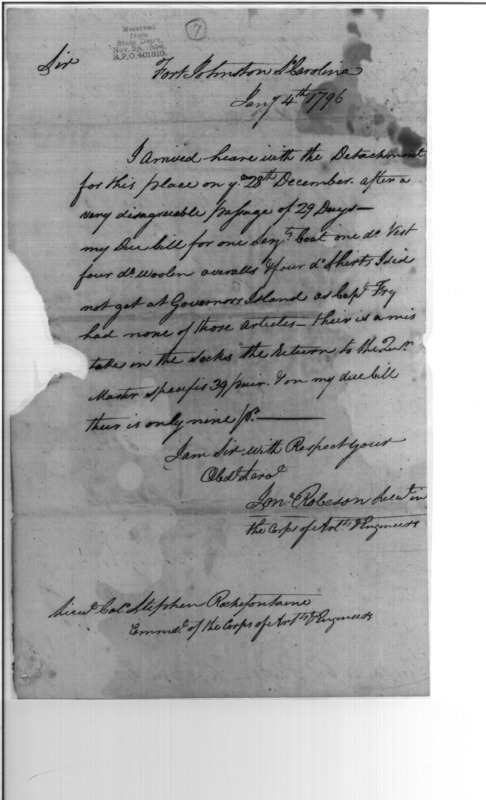 Received
from
State Dept.
Nov. 28, 1894.
R.P.O. 401810.
7
Sir
Fort Johnston So Carolina
Jany 4th 1796
I Arrived heare with the Detachment
for this place on ye 28th December. after a
very disagreeable passage of 29 Days—
my Due bill for one Serjts Coat one do Vest
four do woolen overalls & four do Shirts I did
not get at Governors Island as Capt Fry
had none of those articles— their is a mis
take in the Socks the Return to the Qur.
Master Specifis 39 pair. & on my due bill
their is only nine pr.
I am Sir with Respect your
Obdt Servt
Jons Robeson Lieut in
the Corps of Arts & Engineers
Lieut Colo Stephen Rochefontaine
Commdt of the Corps of Arts & Engineers